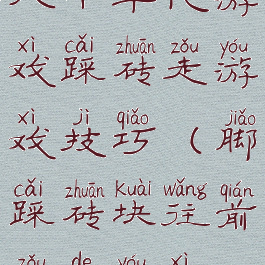 游
xì cǎi zhuān zǒu yóu
戏踩砖走游
xì jì qiǎo jiǎo
戏技巧(脚
cǎi zhuān kuài wǎng qián
踩砖块往前
zǒu de yóu xì